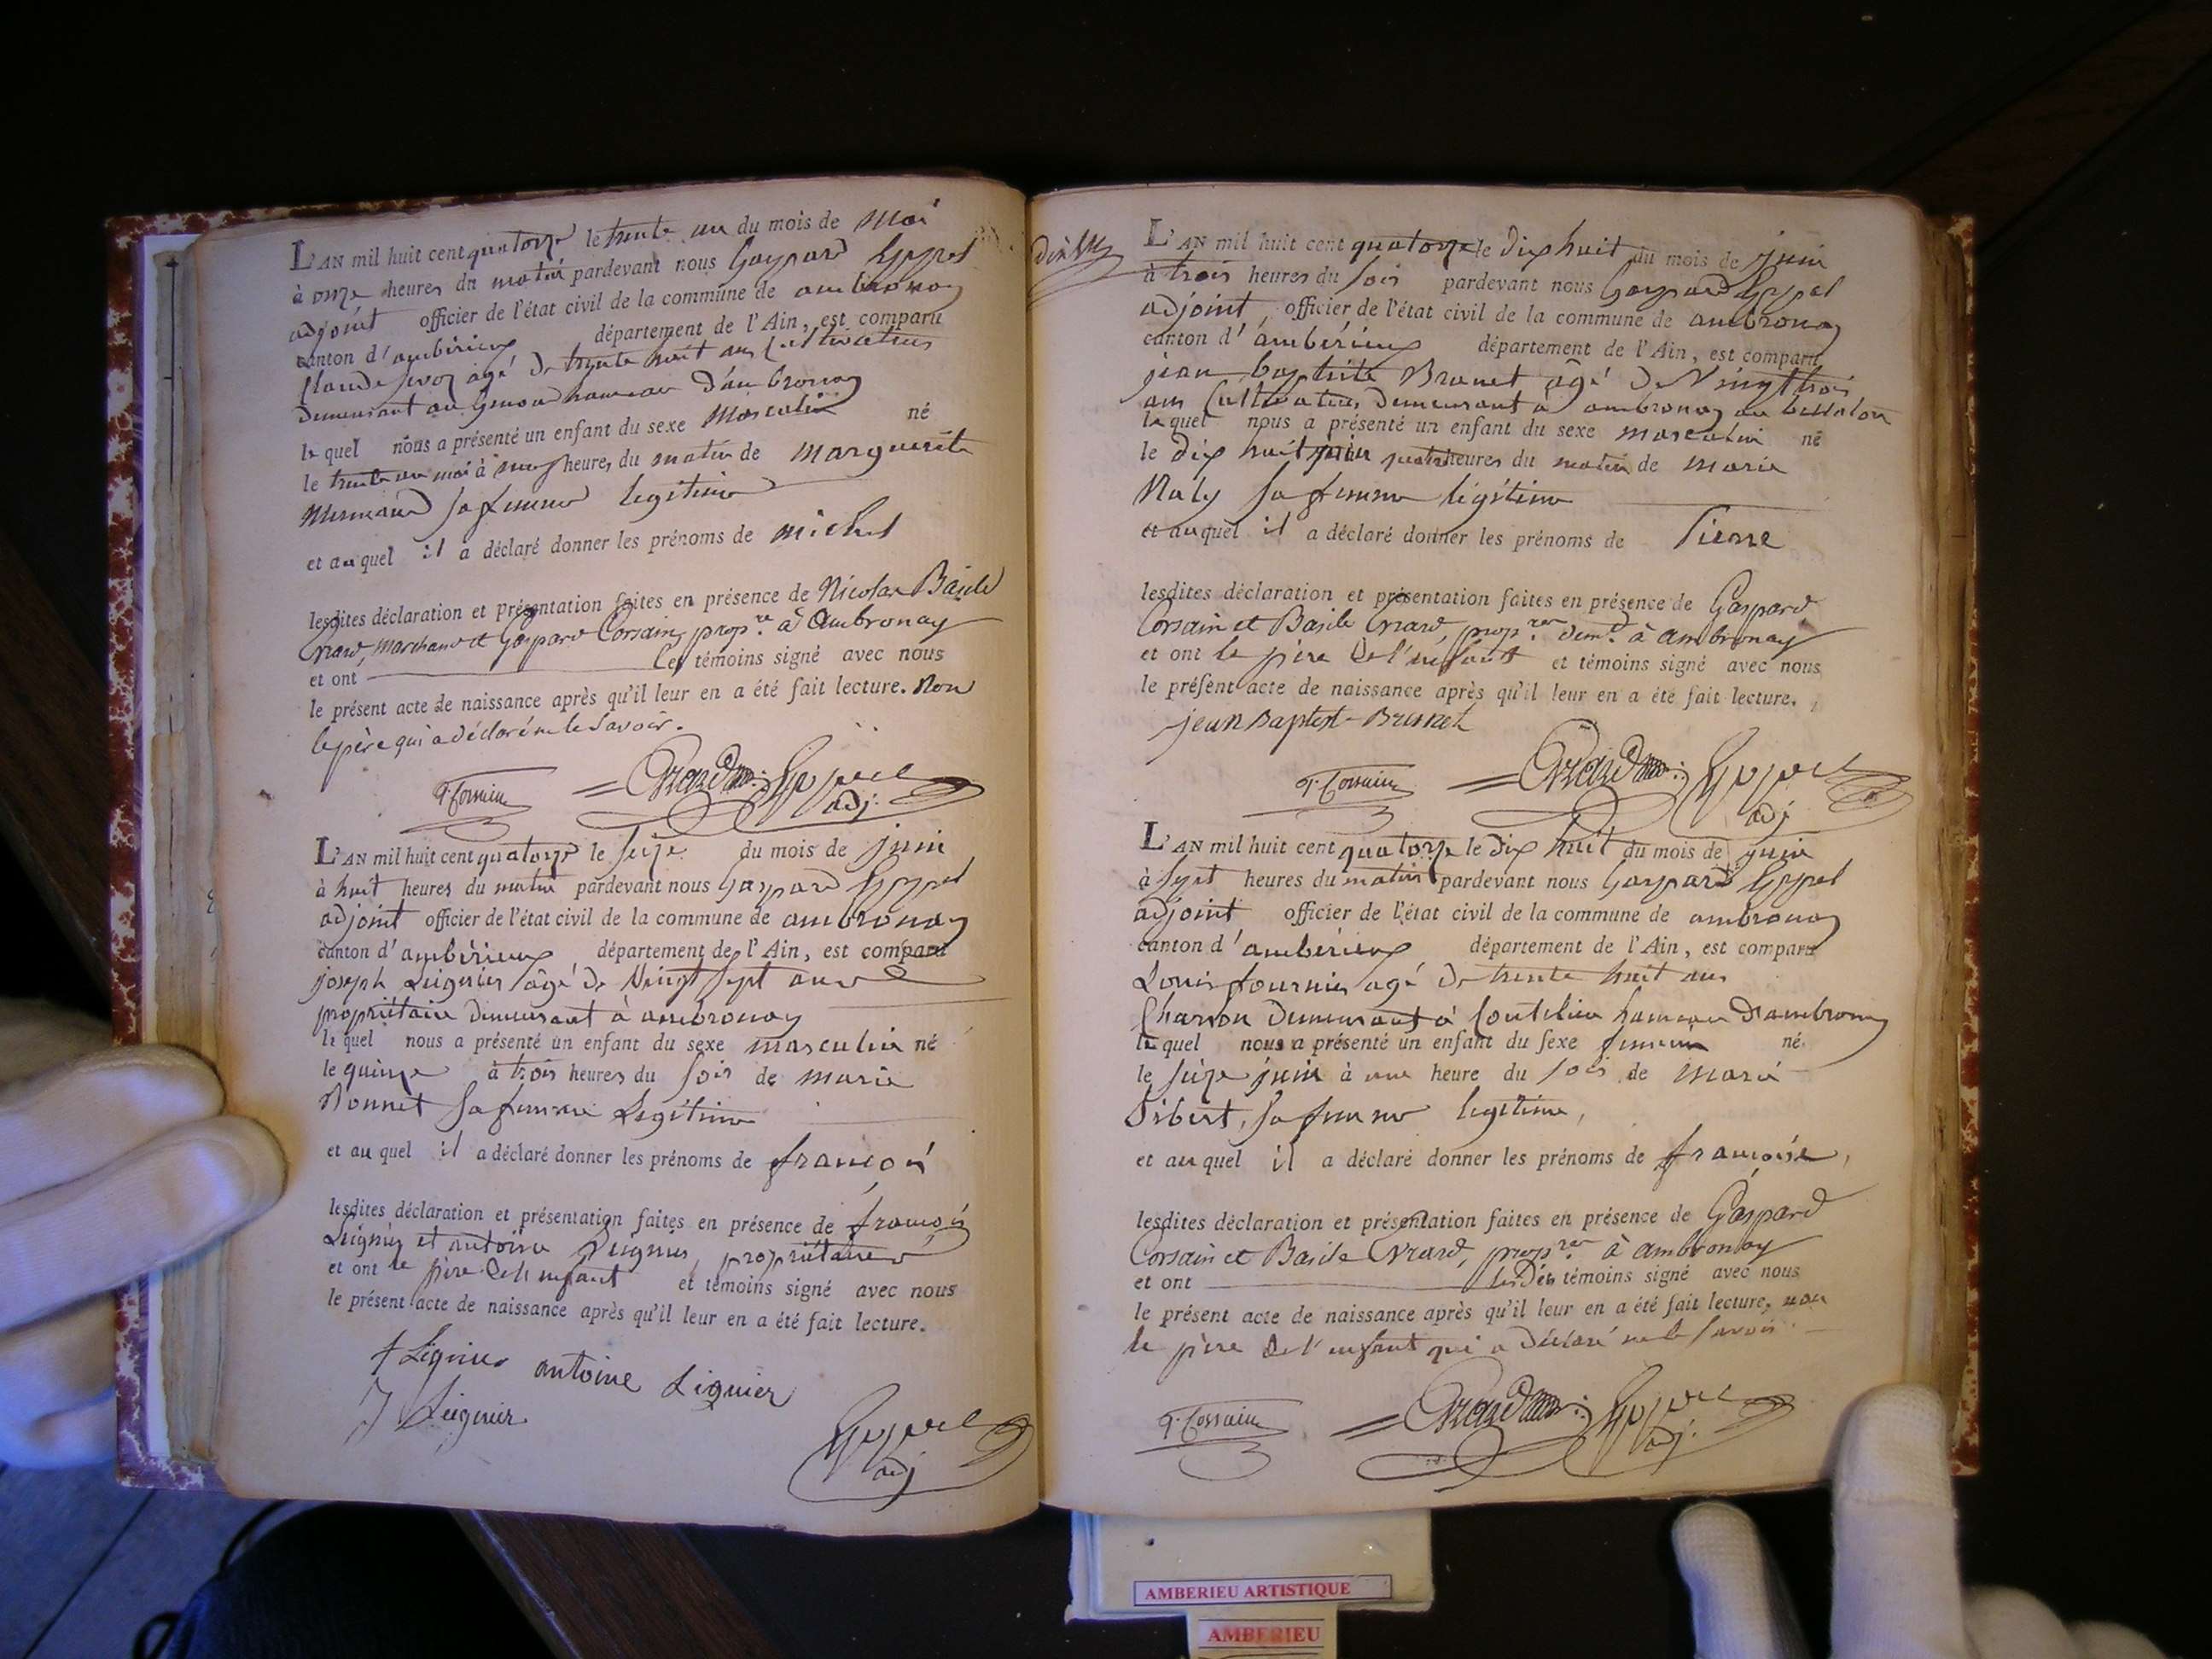 L'AN mil huit cent quatorze le trente un du mois de mai
à onze heures du matin pardevant nous Gaspard
adjoint officier de l'état civil de la commune de ambronay
canton d'ambérieux département de l'Ain, est comparu
Claude agé de trente huit ans Cultivateur
demeurant au hameau d'ambronay
le quel nous a présenté un enfant du sexe Masculin né
le trente un mai à neuf heures du matin de marguerite
sa femme legitime
et au quel il a déclaré donner les prénoms de michel
lesdites déclaration et présentation faites en présence de Nicolas Basile
Evrard, marchand et Gaspard Corsain, prop.re à Ambronay
et ont les témoins signé avec nous
le présent acte de naissance après qu'il leur en a été fait lecture. Non
le père qui a déclaré ne le savoir.
G. Corsain Evrard
adj.
L'AN mil huit cent quatorze le seize du mois de juin
à huit heures du matin pardevant nous Gaspard
adjoint officier de l'état civil de la commune de ambronay
canton d'ambérieux département de l'Ain, est comparu
joseph Leignier âgé de vingt sept ans
propriétaire demeurant à ambronay
le quel nous a présenté un enfant du sexe masculin né
le quinze à trois heures du soir de marie
Bonnet sa femme Legitime
et au quel il a déclaré donner les prénoms de françois
lesdites déclaration et présentation faites en présence de françois
Leignier et antoine Leignier, propriétaires
et ont le père de l'enfant et témoins signé avec nous
le présent acte de naissance après qu'il leur en a été fait lecture.
f Lignier antoine Liguier
J Leignier
adj
L'AN mil huit cent quatorze le dix huit du mois de juin
à trois heures du soir pardevant nous Gaspard
adjoint, officier de l'état civil de la commune de ambronay
canton d'ambérieux département de l'Ain, est comparu
jean baptiste Brunet âgé de Vingt trois
ans Cultivateur demeurant à ambronay au
le quel nous a présenté un enfant du sexe masculin né
le dix huit juin quatre heures du matin de marie
sa femme légitime
et au quel il a déclaré donner les prénoms de Pierre
lesdites déclaration et présentation faites en présence de Gaspard
Corsain et Basile Evrard, prop.res dem.t à ambronay
et ont le père de l'enfant et témoins signé avec nous
le présent acte de naissance après qu'il leur en a été fait lecture.
jean Baptist-Brunet
G. Corsain Evrard
adj
L'AN mil huit cent quatorze le dix huit du mois de juin
à sept heures du matin pardevant nous Gaspard
adjoint officier de l'état civil de la commune de ambronay
canton d'ambérieux département de l'Ain, est comparu
Louis fournier agé de trente huit ans
Charron demeurant à Coutelieu hameau d'ambronay
le quel nous a présenté un enfant du sexe feminin né
le seize juin à une heure du soir de marie
Sibert, sa femme legitime,
et au quel il a déclaré donner les prénoms de françoise,
lesdites déclaration et présentation faites en présence de Gaspard
Corsain et Basile Evrard, prop.res à ambronay
et ont lesdits témoins signé avec nous
le présent acte de naissance après qu'il leur en a été fait lecture, non
le père de l'enfant qui a déclaré ne le savoir
G. Corsain Evrard
adj.
AMBERIEU ARTISTIQUE
AMBERIEU